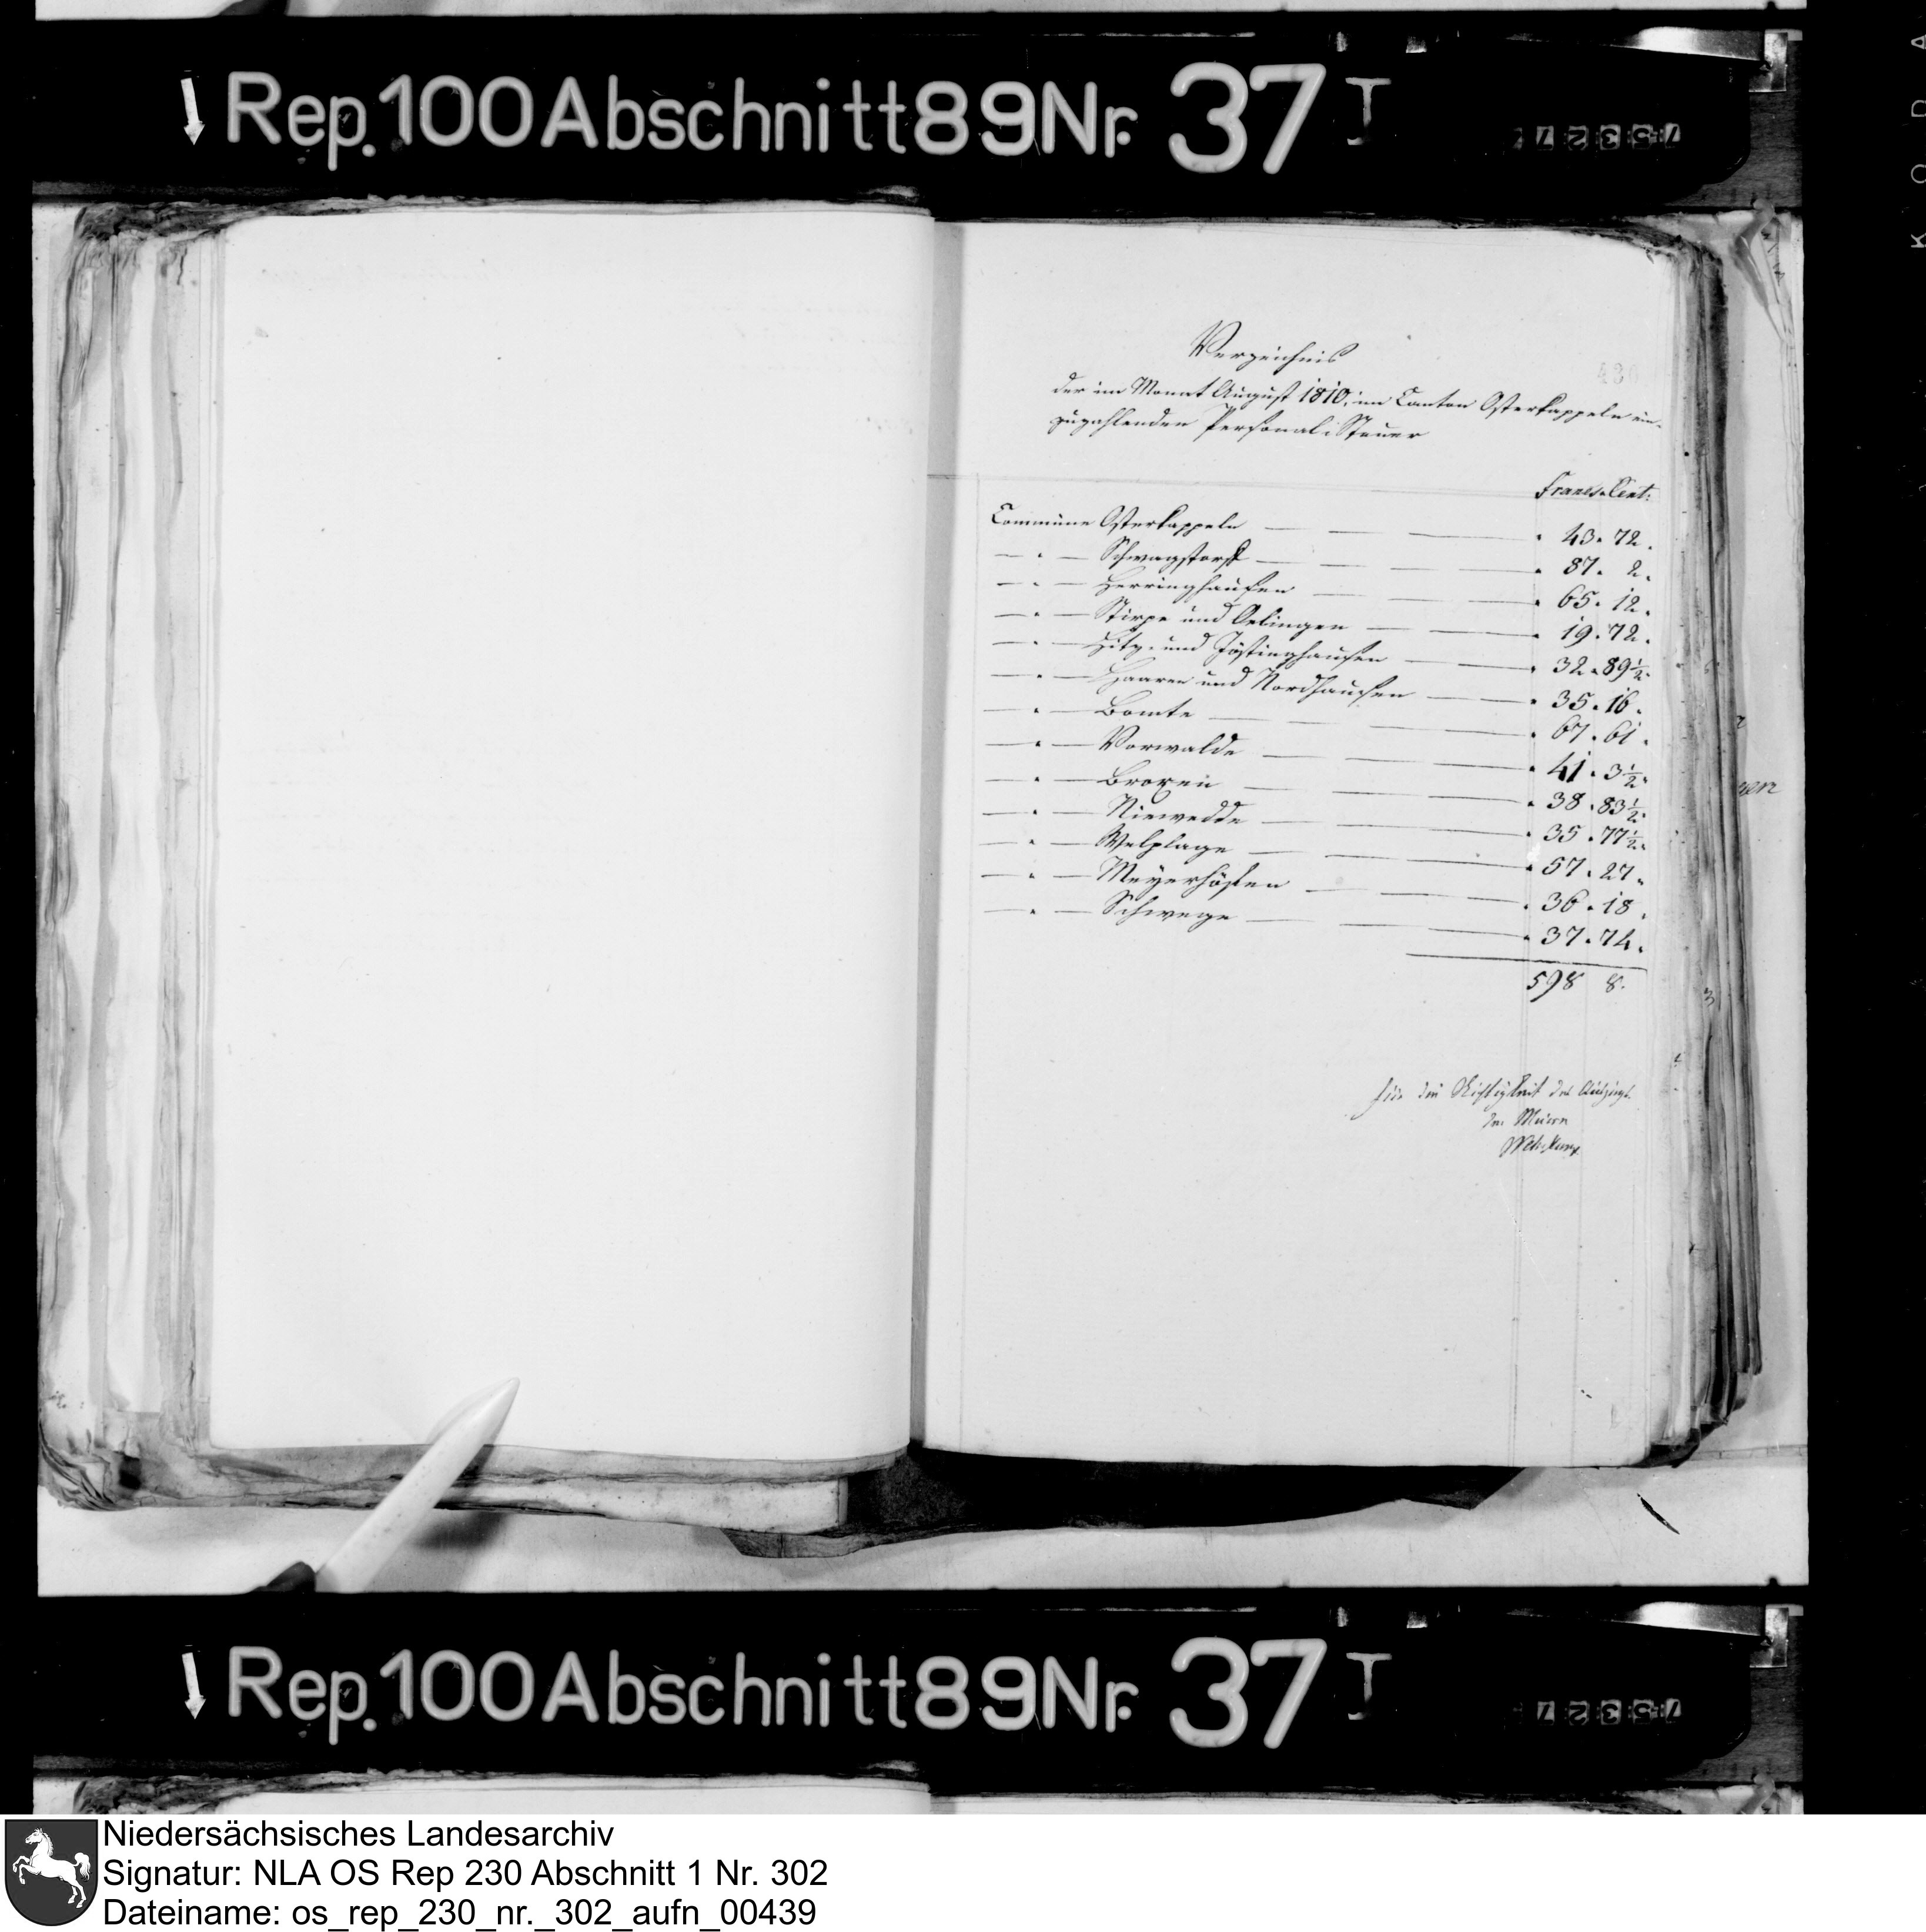 Rep. 100 Abschnitt 89 Nr. 37 I
75327
Verzeichnis
der im Monat August 1810, im Canton Osterkappeln ein-
zuzahlenden Personal-Steuer
Francs. Cent:
Commüne Osterkappeln — — — 43. 72.
— " — Schwagstorf — — — 87. 2.
— " — Herringhausen — — 65. 12.
— " — Stirpe und Oelingen — — 19. 72.
— " — Hitz- und Jöstinghausen — — 32. 89½.
— " — Haaren und Nordhausen — — 35. 16.
— " — Bomte — — — 67. 61.
— " — Vorwalde — — — 41. 3½.
— " — Broxen — — — 38. 83½.
— " — Niewedde — — — 35. 77½.
— " — Welplage — — — 57. 27.
— " — Meyerhöfen — — — 36. 18.
— " — Schwege — — — 37. 74.
598 8.
für die Richtigkeit des Auszugs
der Maire
Rep. 100 Abschnitt 89 Nr. 37 I
75327
Niedersächsisches Landesarchiv
Signatur: NLA OS Rep 230 Abschnitt 1 Nr. 302
Dateiname: os_rep_230_nr._302_aufn_00439